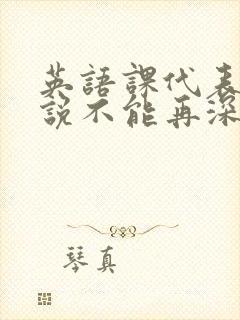 英語課代表
說不能再深
琴真